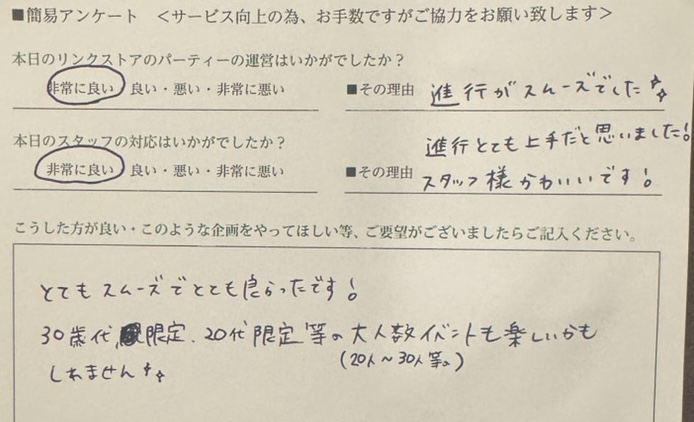 ■簡易アンケート <サービス向上の為、お手数ですがご協力をお願い致します>
本日のリンクストアのパーティーの運営はいかがでしたか?
非常に良い・良い・悪い・非常に悪い ■その理由 進行がスムーズでした
本日のスタッフの対応はいかがでしたか?
進行とても上手だと思いました!
非常に良い・良い・悪い・非常に悪い ■その理由 スタッフ様かわいいです!
こうした方が良い・このような企画をやってほしい等、ご要望がございましたらご記入ください。
とてもスムーズでとても良らったです!
30歳代限定、20代限定等の大人数イベントも楽しいかも
(20人〜30人等の)
しれません